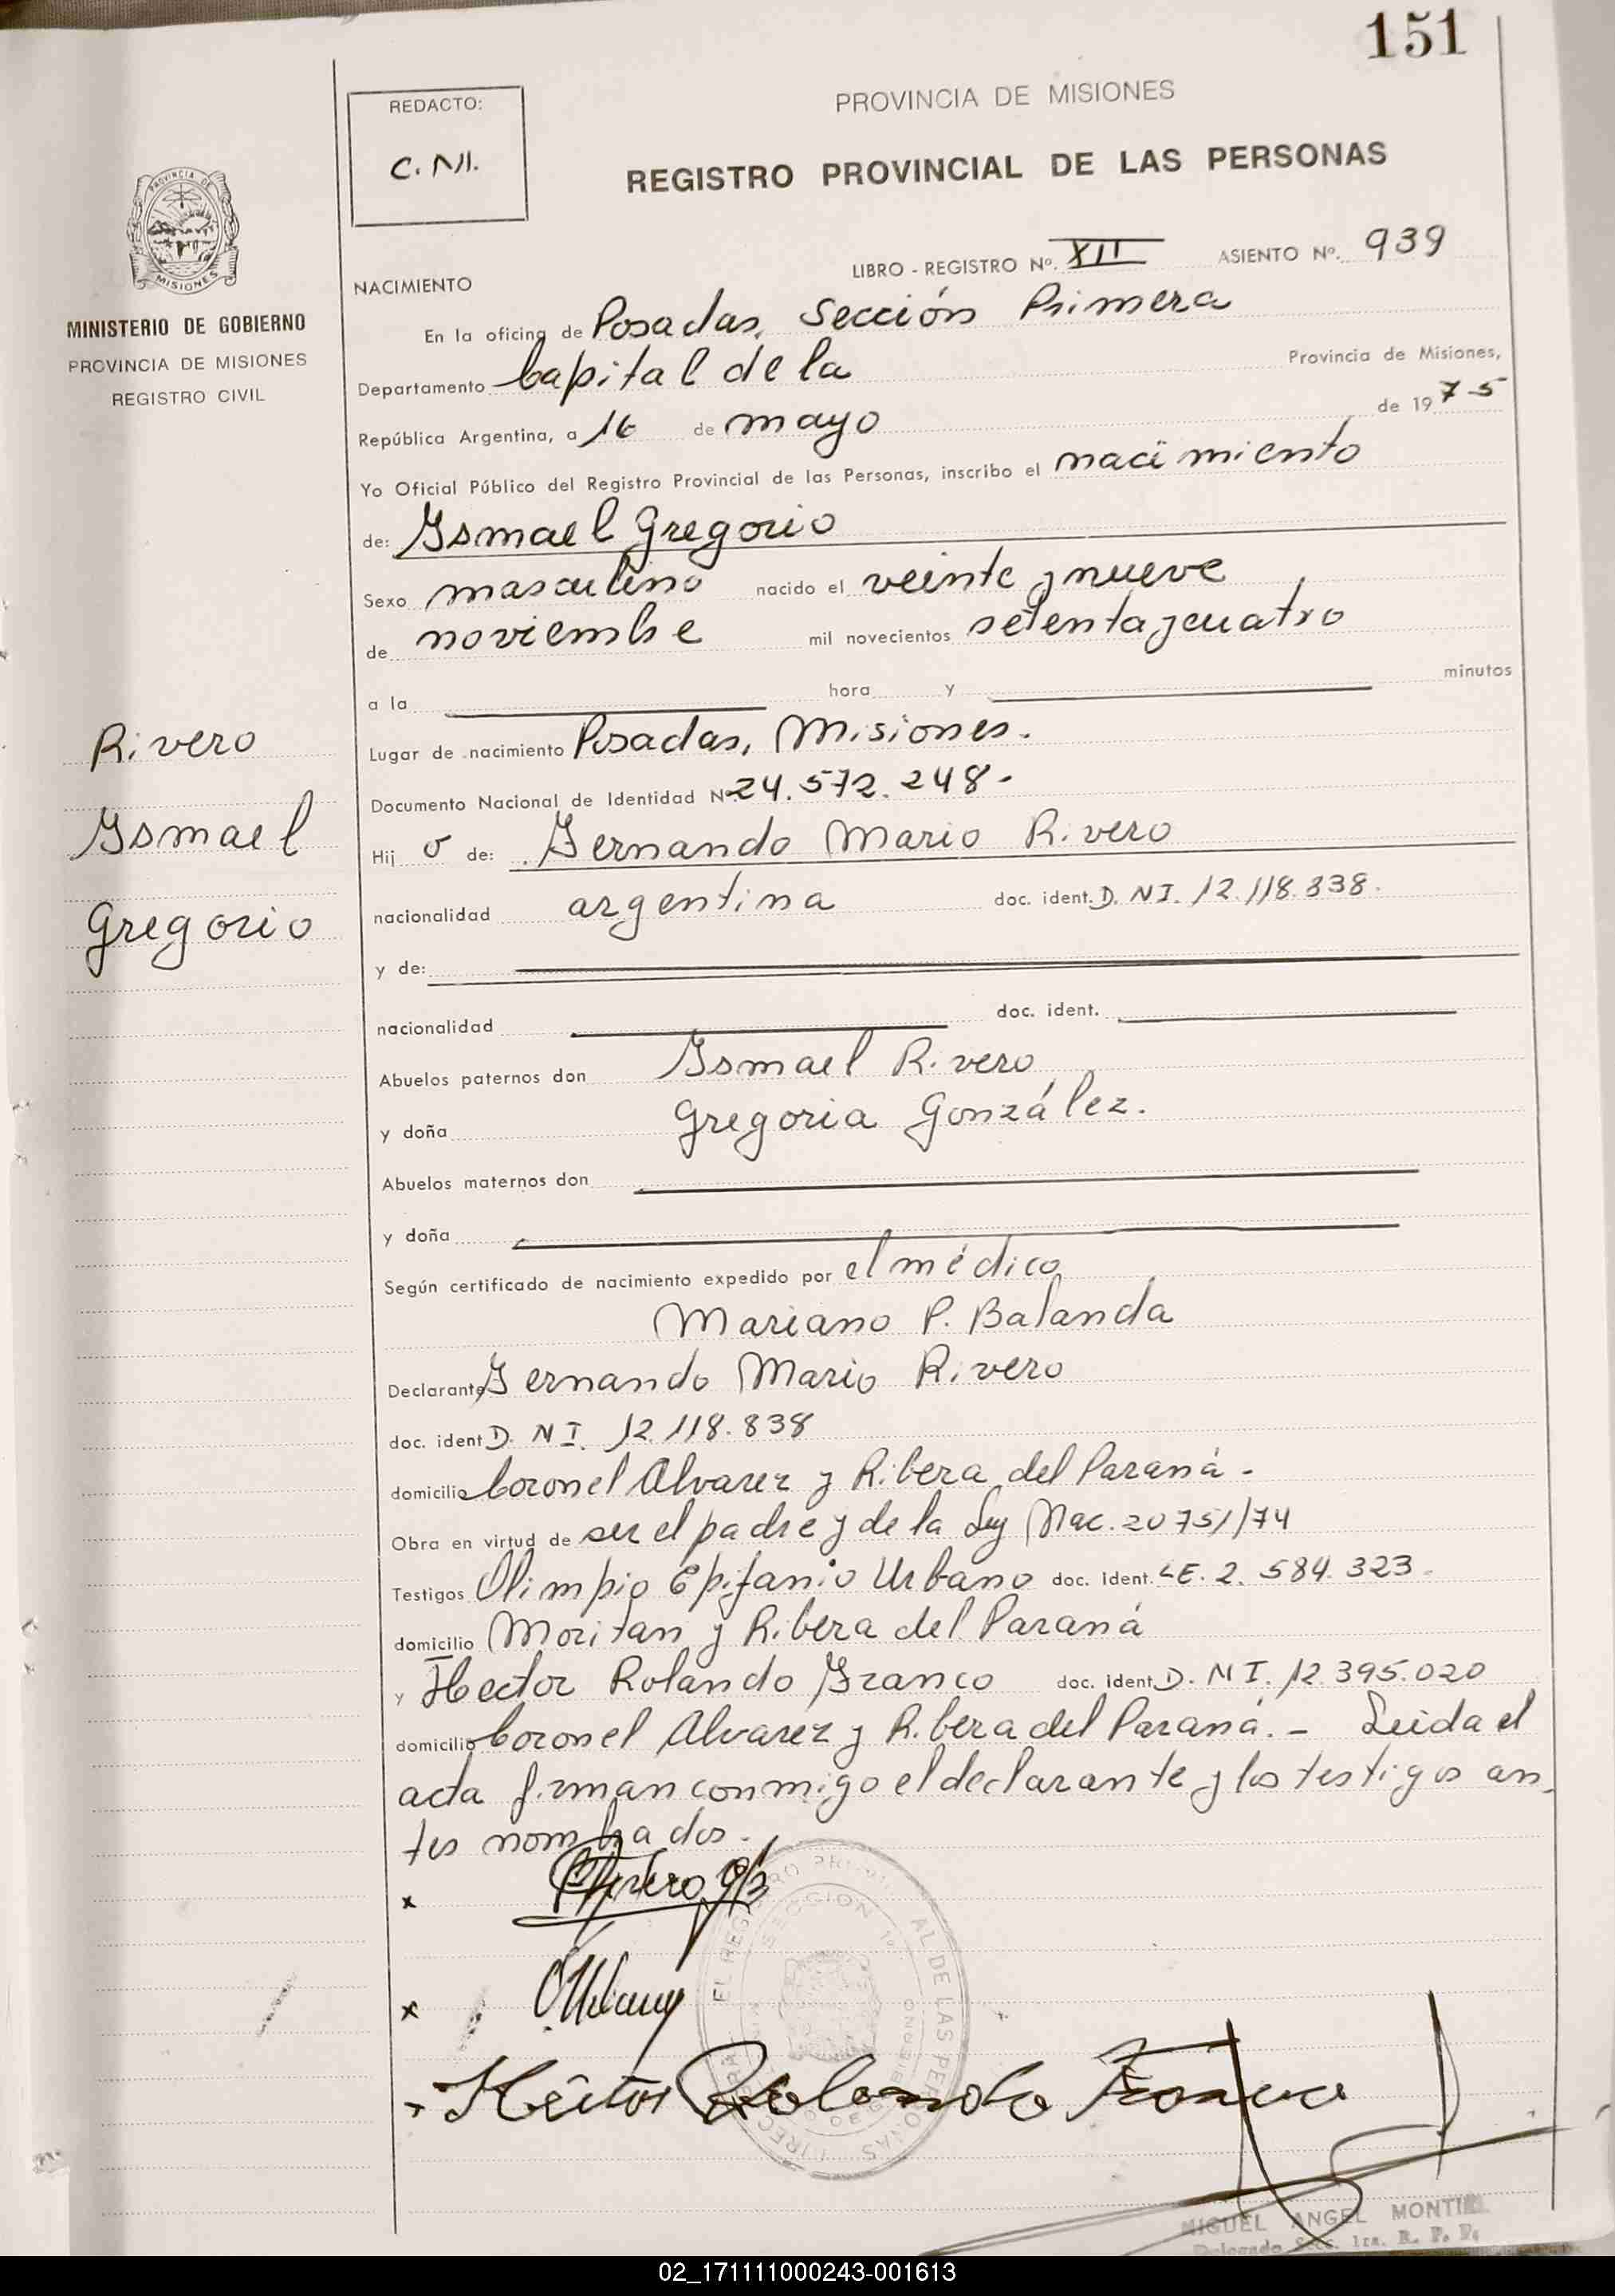 151
PROVINCIA DE MISIONES
REGISTRO PROVINCIAL DE LAS PERSONAS
REDACTO:
C. NI.
PROVINCIA DE
MISIONES
MINISTERIO DE GOBIERNO
PROVINCIA DE MISIONES
REGISTRO CIVIL
LIBRO - REGISTRO Nº. XII ASIENTO Nº. 939
NACIMIENTO
En la oficina de Posadas, Sección Primera
Departamento Capital de la Provincia de Misiones,
República Argentina, a 16 de mayo de 1975
Yo Oficial Público del Registro Provincial de las Personas, inscribo el nacimiento
de: Ismael Gregorio
Sexo masculino nacido el veinte y nueve
de noviembre mil novecientos setenta y cuatro
a la hora y minutos
Lugar de nacimiento Posadas, Misiones.
Documento Nacional de Identidad Nº 24.572.248.-
Rivero
Ismael
Gregorio
Hij o de: Fernando Mario Rivero
nacionalidad argentina doc. ident. D.NI. 12.118.838.
y de:
nacionalidad doc. ident.
Abuelos paternos don Ismael Rivero
y doña Gregoria González.
Abuelos maternos don
y doña
Según certificado de nacimiento expedido por el médico
Mariano P. Balanda
Declarante Fernando Mario Rivero
doc. ident D. NI. 12.118.838
domicilio Coronel Alvarez y Ribera del Paraná -
Obra en virtud de ser el padre y de la Ley Nac. 20751/74
Testigos Olimpio Epifanio Urbano doc. ident. LE. 2.584.323.
domicilio Moritan y Ribera del Paraná
y Hector Rolando Franco doc. ident D. NI. 12.395.020
domicilio Coronel Alvarez y Ribera del Paraná. - Leida el
acta firman conmigo el declarante y los testigos an,
tes nombrados.
x
x
Héctor Rolando Franco
SECCION 1º
AL DE LAS PERSONAS
MIGUEL ANGEL MONTIEL
Delegado Secc. 1ra. R. P. P.
02_171111000243-001613